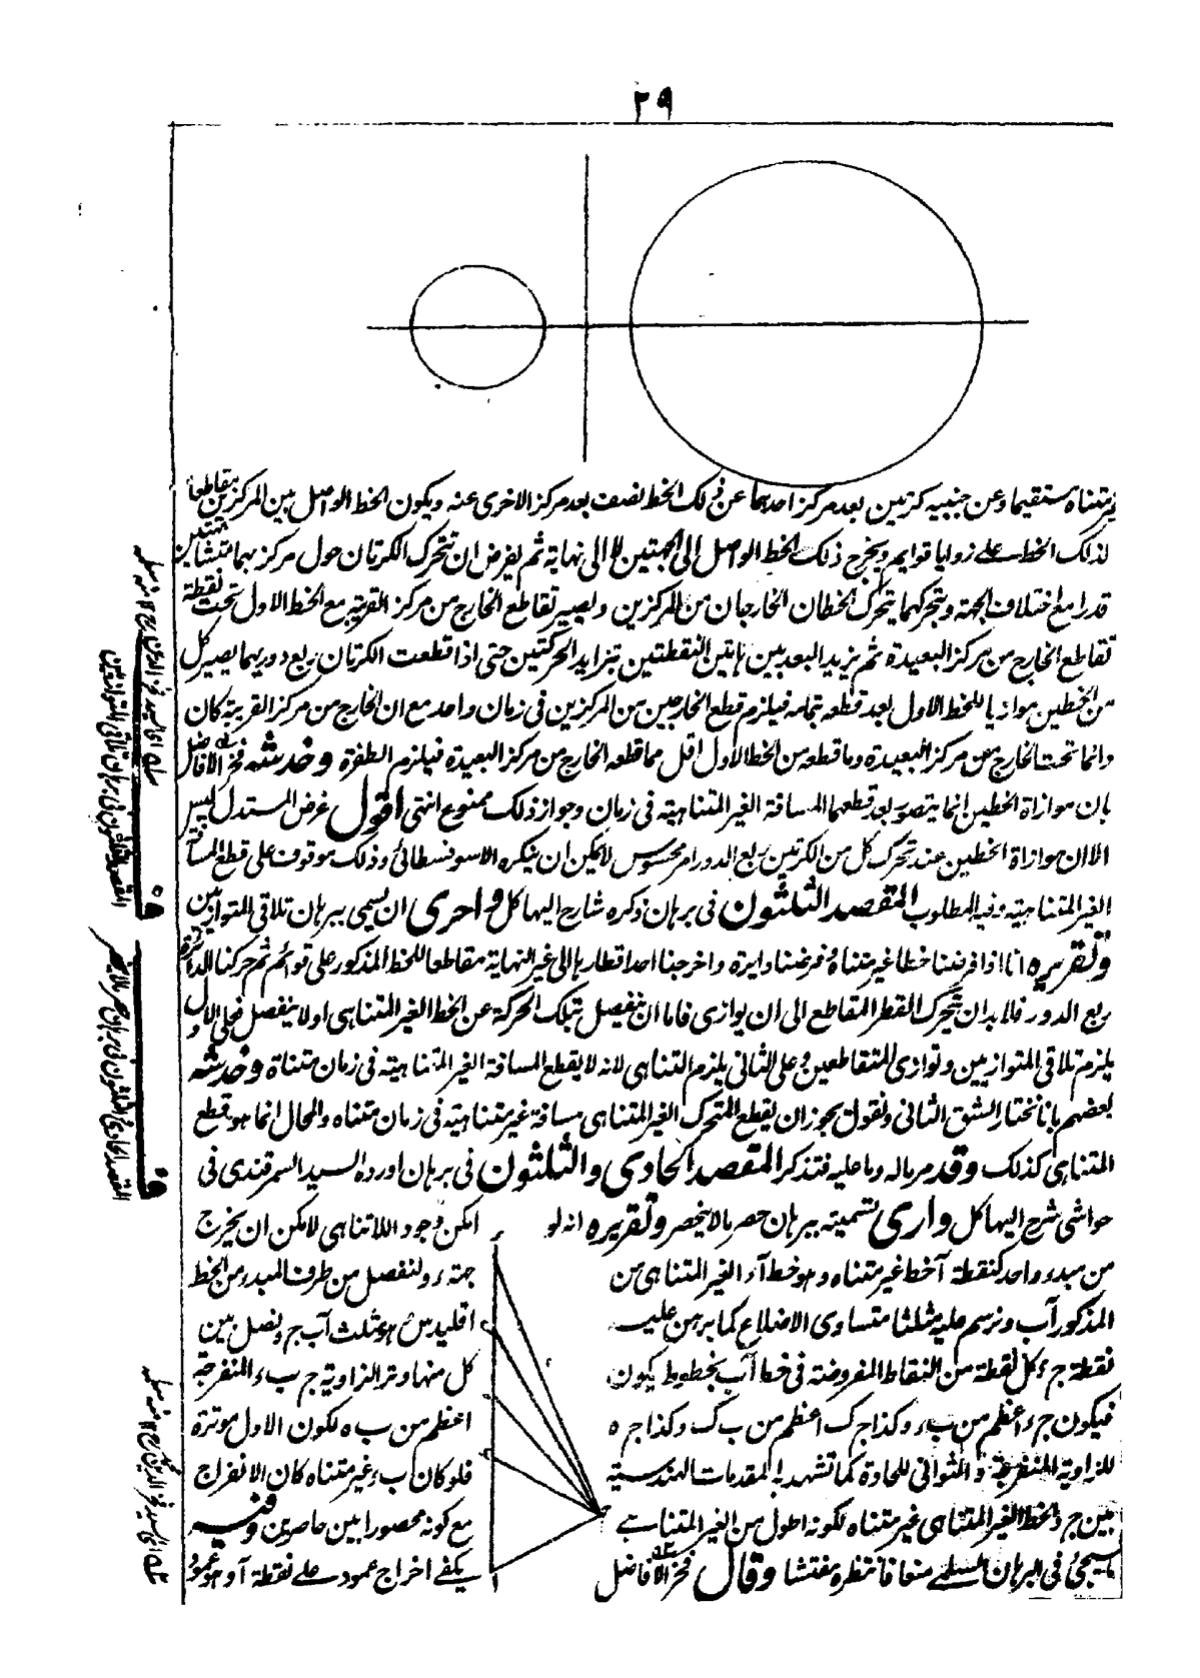 ٢٩
متناه مستقيما وعن جنبيه كرتين بعد مركز احدهما عن ذلك الخط نصف بعد مركز الاخرى عنه ويكون الخط الواصل بين المركزين مقاطعا
لذلك الخط على زوايا قوايم ويخرج ذلك الخط الواصل الى الجهتين لا الى نهاية ثم يفرض ان تتحرك الكرتان حول مركزيهما متشابهتين
قدرا مع اختلاف الجهة وبتحركهما يتحرك الخطان الخارجان من المركزين ويصير تقاطع الخارج من مركز القريبة مع الخط الاول تحت نقطة
تقاطع الخارج من مركز البعيدة ثم يزيد البعد بين هاتين النقطتين بتزايد الحركتين حتى اذا قطعت الكرتان ربع دوريهما يصير كل
من الخطين موازيا للخط الاول بعد قطعه بتمامه فيلزم قطع الخارجين من المركزين فى زمان واحد مع ان الخارج من مركز القريبة كان
دائما تحت الخارج من مركز البعيدة وما قطعه من الخط الاول اقل مما قطعه الخارج من مركز البعيدة فيلزم الطفرة وخدشه فخر الافاضل
بان موازاة الخطين انما يتصور بعد قطعهما المسافة الغير المتناهية فى زمان وجواز ذلك ممنوع انتهى اقول غرض المستدل ليس
الا ان موازاة الخطين عند تحرك كل من الكرتين ربع الدور امر محسوس لا يمكن ان ينكره الا سوفسطائى وذلك موقوف على قطع المسافة
الغير المتناهية وفيه المطلوب المقصد الثلثون فى برهان ذكره شارح الهياكل واحرى ان يسمى ببرهان تلاقى المتوازيين
وتقريره انا اذا فرضنا خطا غير متناه فرضنا دايرة واخرجنا احد اقطارها الى غير النهاية مقاطعا للخط المذكور على قوائم ثم حركنا الدائرة
ربع الدور فلا بد ان يتحرك القطر المقاطع الى ان يوازى فاما ان ينفصل بتلك الحركة عن الخط الغير المتناهى او لا ينفصل فعلى الاول
يلزم تلاقى المتوازيين وتوازى المتقاطعين وعلى الثانى يلزم التناهى لانه لا يقطع المسافة الغير المتناهية فى زمان متناه وخدشه
بعضهم بانا نختار الشق الثانى ونقول يجوز ان يقطع المتحرك الغير المتناهى مسافة غير متناهية فى زمان متناه والمحال انما هو قطع
المتناهى كذلك وقد مر ماله وما عليه فتذكر المقصد الحادى والثلثون فى برهان اورده السيد السمرقندى فى
حواشى شرح الهياكل وارى تسميته ببرهان حصر ما لا ينحصر وتقريره انه لو امكن وجود اللاتناهى لامكن ان يخرج
من مبدء واحد كنقطة آ خط غير متناه وهو خط آء الغير المتناهى من جهة ء ولنفصل من طرف المبدء من الخط
المذكور آب ونرسم عليه مثلثا متساوى الاضلاع كما برهن عليه اقليدس هو مثلث آب ج ونصل بين
نقطة ج وكل نقطة من النقاط المفروضة فى خط آب بخطوط يكون كل منها وتر الزاوية ج ب ء المنفرجة
فيكون ج ء اعظم من ب ء وكذا ج ك اعظم من ب ك وكذا ج ه اعظم من ب ه لكون الاول موترة
للزاوية المنفرجة والثوانى للحادة كما تشهد به المقدمات الهندسية فلو كان ب ء غير متناه كان الانفراج
بين ج والخط الغير المتناهى غير متناه لكونه اطول من الغير المتناهى مع كونه محصورا بين حاصرين وفيه
ما سيجئ فى البرهان السلمى منعا فانتظره مفتشا وقال فخر الافاضل يكفى اخراج عمود على نقطة آ وهو عمود
المقصد الثلثون فى برهان تلاقى المتوازيين
المقصد الحادى والثلثون فى برهان حصر ما لا ينحصر